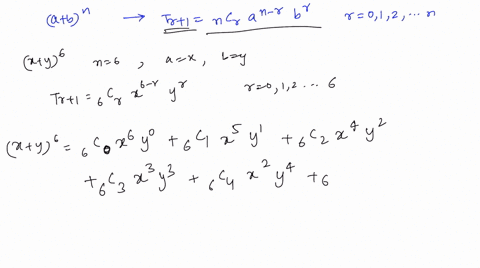 (a+b)^n → T_{r+1} = nC_r a^{n-r} b^r r=0,1,2,...n
(x+y)^6 n=6, a=x, b=y
T_{r+1} = 6C_r x^{6-r} y^r r=0,1,2...6
(x+y)^6 = 6C_0 x^6 y^0 + 6C_1 x^5 y^1 + 6C_2 x^4 y^2
+ 6C_3 x^3 y^3 + 6C_4 x^2 y^4 + 6